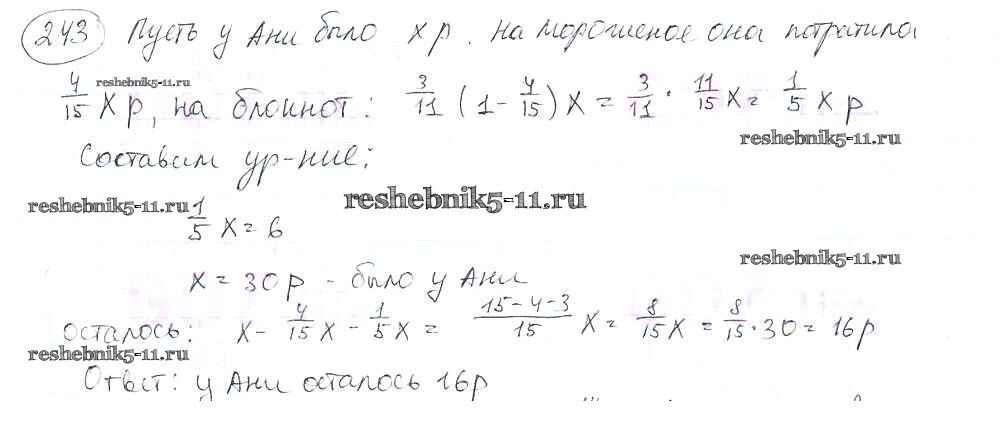 243 Пусть у Ани было x р. На мороженое она потратила
reshebnik5-11.ru
4/15 x р, на блокнот: 3/11 (1 - 4/15) x = 3/11 · 11/15 x = 1/5 x р.
reshebnik5-11.ru
Составим ур-ние:
reshebnik5-11.ru
reshebnik5-11.ru
1/5 x = 6
reshebnik5-11.ru
x = 30 р - было у Ани
осталось: x - 4/15 x - 1/5 x = (15-4-3)/15 x = 8/15 x = 8/15 · 30 = 16 р
reshebnik5-11.ru
Ответ: у Ани осталось 16 р